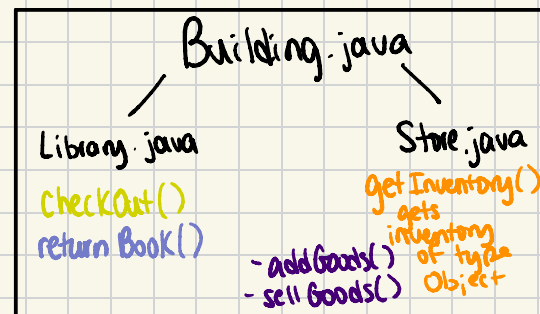 Building.java
Library.java
checkOut()
returnBook()
Store.java
getInventory()
gets
inventory
of type
Object
- addGoods()
- sellGoods()